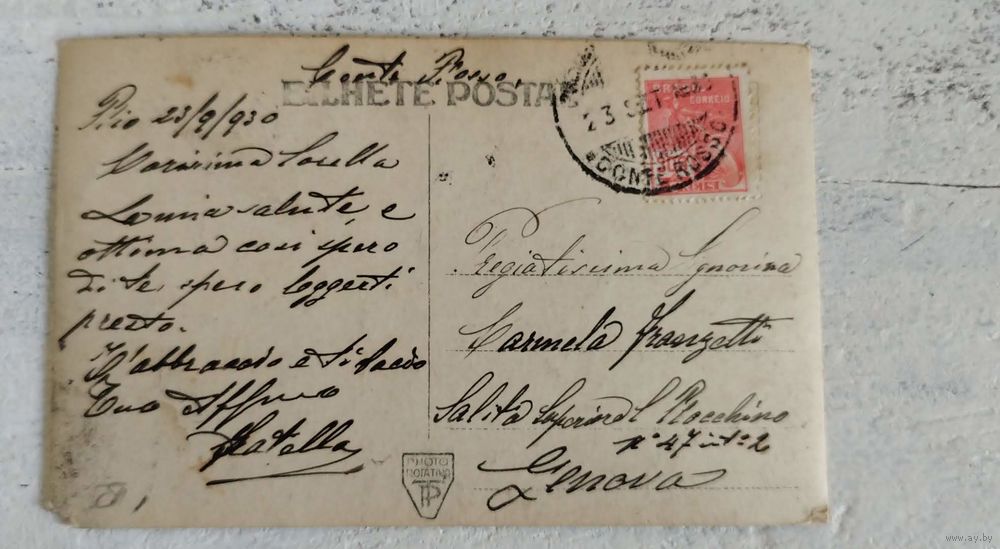 Conte Rosso.
BILHETE POSTAL
Rio 23/9/930
Carissima Sorella
La mia salute, e
ottima cosi spero
di te spero leggerti
presto.
T'abbraccio e ti bacio
Tuo Affmo
Fratello
23 SET
CONTE ROSSO
BRASIL
CORREIO
REIS
Pregiatissima Signorina
Carmela Franzetti
Salita Superiore S. Rocchino
n° 47 int° 2
Genova
PHOTO
ROTATIVO
www.ay.by